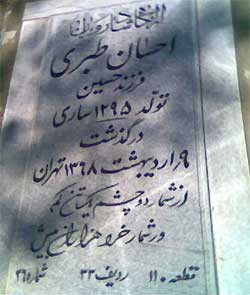 احسان طبری
فرزند حسین
تولد ۱۲۹۵ ساری
درگذشت
۹ اردیبهشت ۱۳۶۸ تهران
از شمار دو چشم یک تن کم
وز شمار خرد هزاران بیش
قطعه ۱۱۰ ردیف شماره